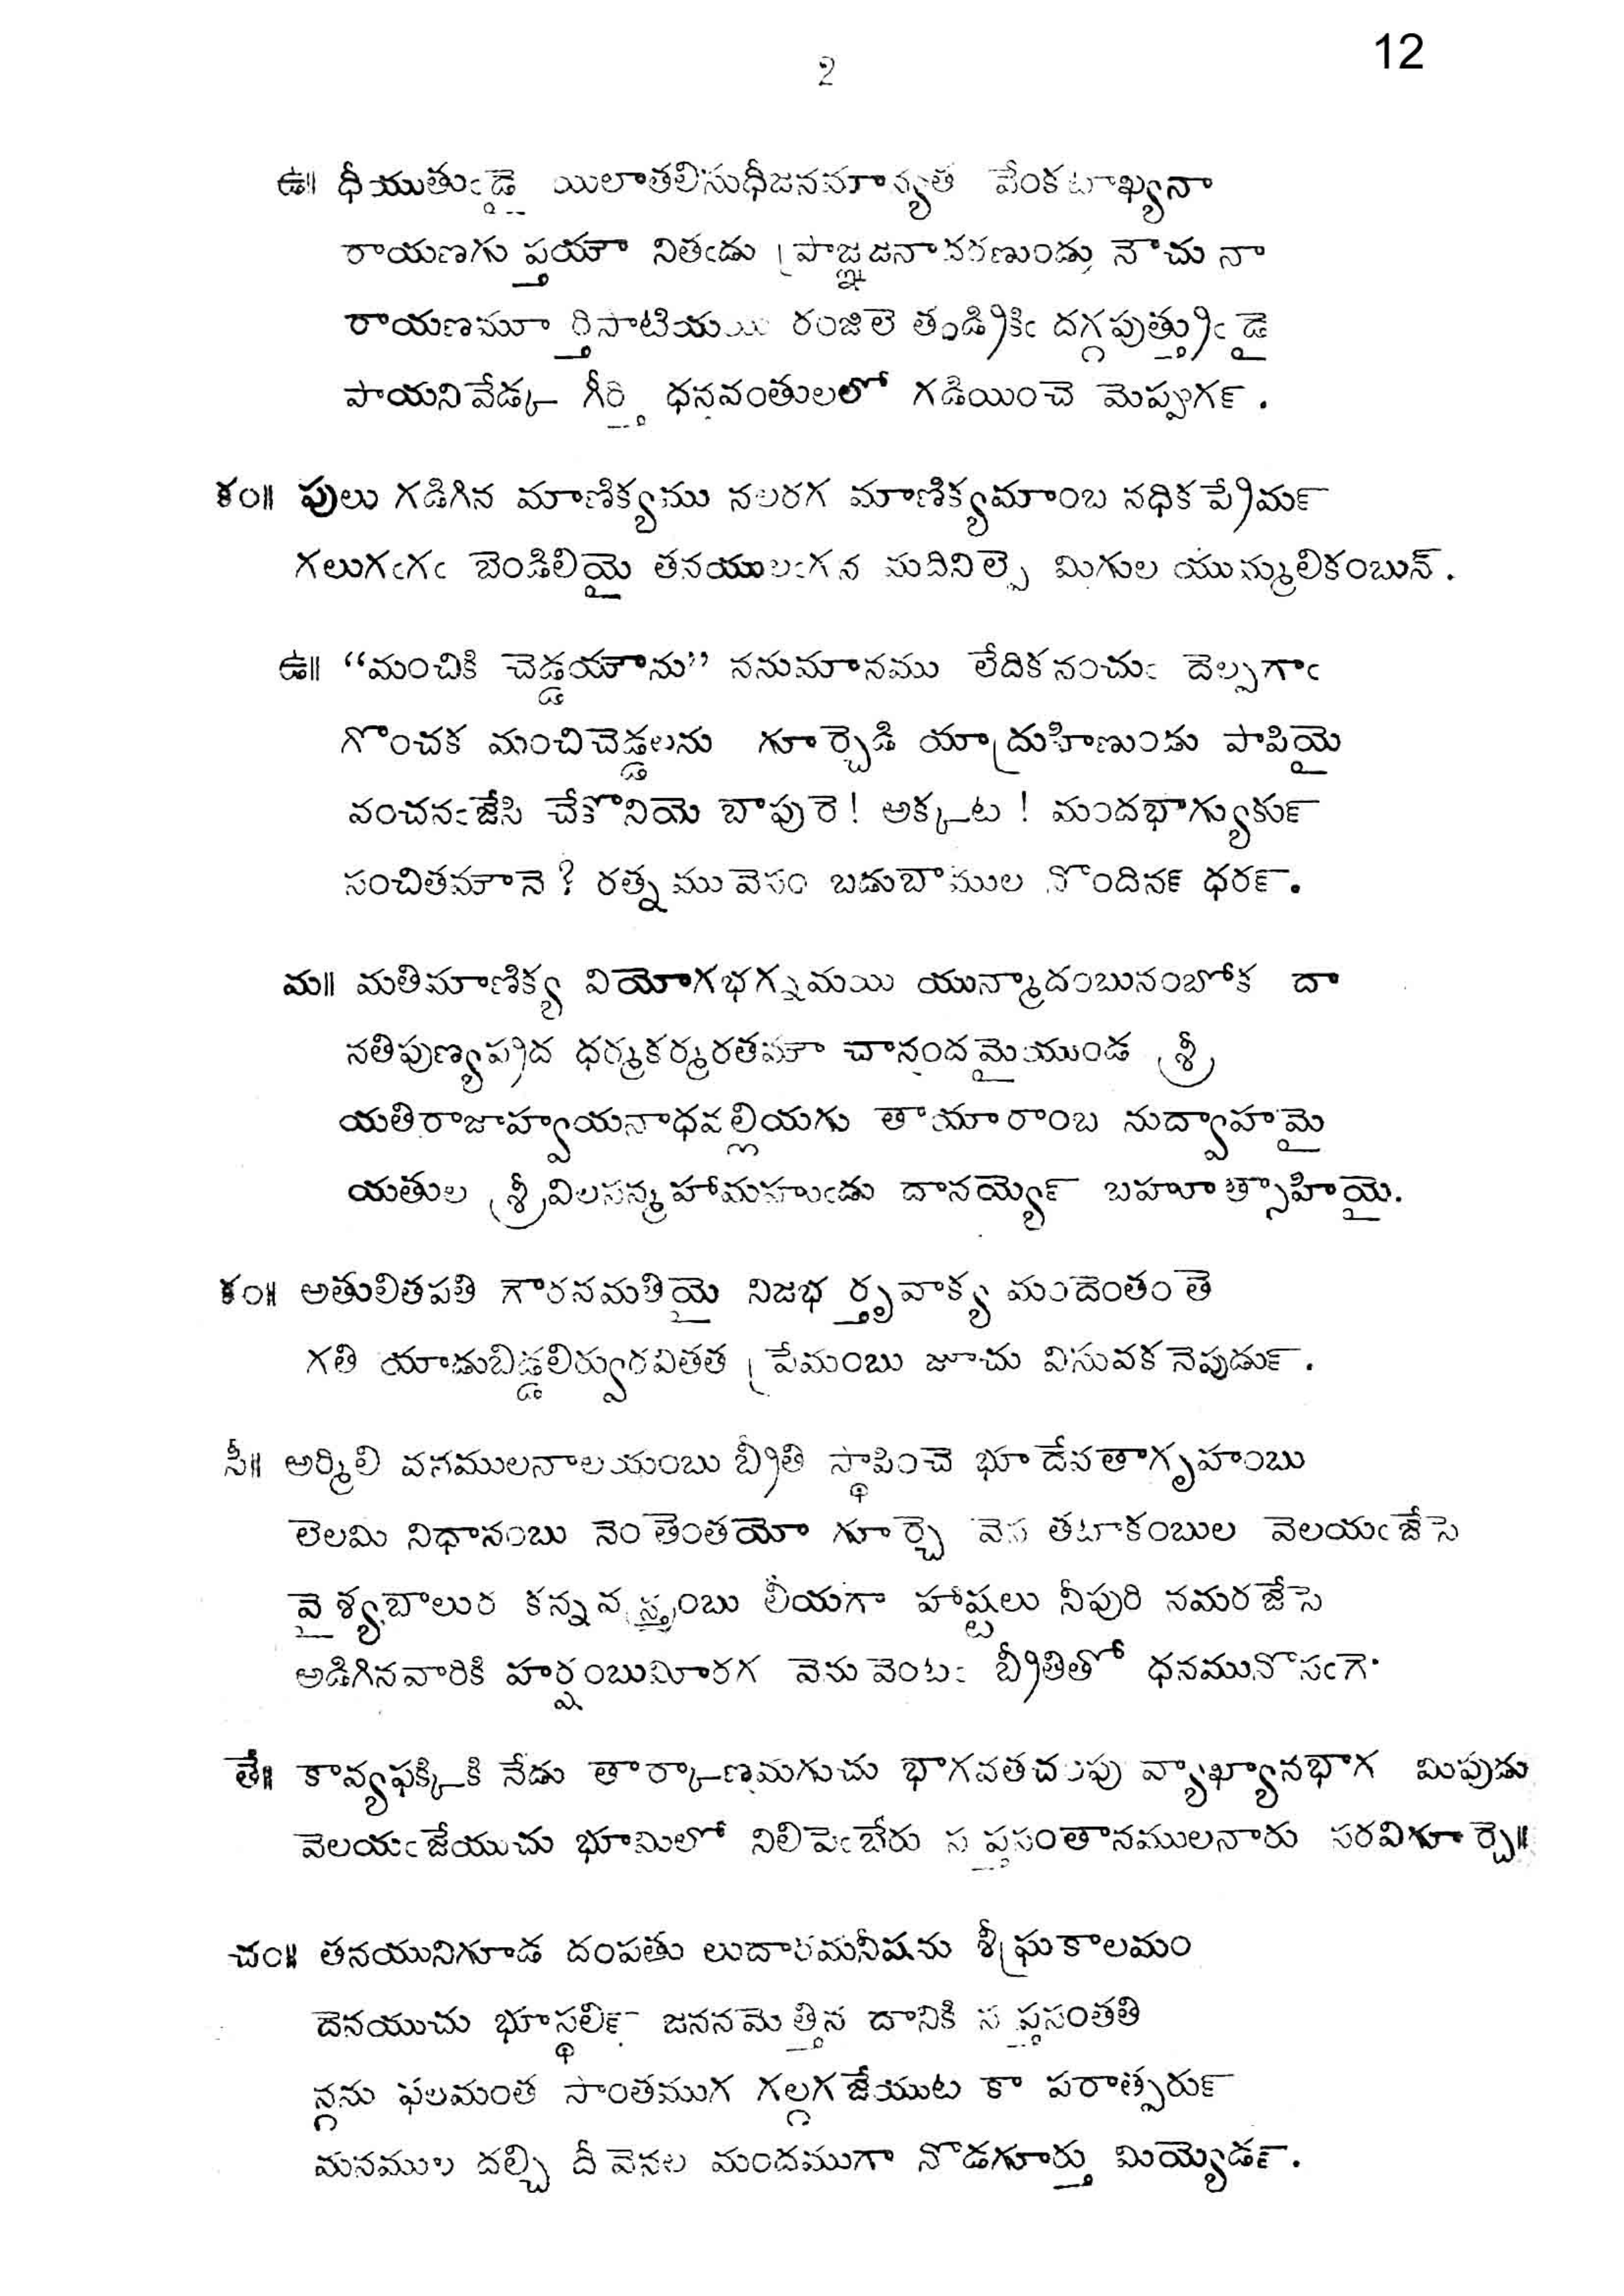 12
2
ఉ॥ ధీయుతుఁడై యిలాతలిసుధీజనమాన్యత వేంకటాఖ్యనా
రాయణగుప్తయౌ నితఁడు ప్రాజ్ఞజనావరణుండు నౌచు నా
రాయణమూర్తిసాటియయి రంజిలె తండ్రికిఁ దగ్గపుత్త్రుఁడై
పాయనివేడ్క గీర్తి ధనవంతులలో గడియించె మెప్పుగన్.
కం॥ పులు గడిగిన మాణిక్యము నలరగ మాణిక్యమాంబ నధికప్రేమన్
గలుగఁగఁ బెండిలియై తనయులఁగన మదినిల్పె మిగుల యున్ములికంబున్.
ఉ॥ “మంచికి చెడ్డయౌను” ననుమానము లేదికనంచుఁ దెల్పగాఁ
గొంచక మంచిచెడ్డలను గూర్చెడి యాద్రుహిణుండు పాపియై
వంచనఁజేసి చేకొనియె బాపురె! అక్కట! మందభాగ్యుకున్
సంచితమౌనె? రత్నము వెసం బడుబాముల నొందినన్ ధరన్.
మ॥ మతిమాణిక్య వియోగభగ్నమయి యున్మాదంబునంబోక దా
నతిపుణ్యప్రద ధర్మకర్మరతమౌ చానందమైయుండ శ్రీ
యతిరాజాహ్వయనాధవల్లియగు తాయారాంబ నుద్వాహమై
యతుల శ్రీవిలసన్మహామహుఁడు దానయ్యెన్ బహూత్సాహియై.
కం॥ అతులితపతి గౌరవమతియై నిజభర్తృవాక్య మందెంతం తె
గతి యాడుబిడ్డలిర్వురవితత ప్రేమంబు జూచు విసువక నెపుడున్.
సీ॥ అర్మిలి వనములనాలయంబు బ్రీతి స్థాపించె భూదేవతాగృహంబు
లెలమి నిధానంబు నెంతెంతయో గూర్చె వెస తటాకంబుల వెలయఁజేసె
వైశ్యబాలుర కన్నవస్త్రంబు లీయగా హాష్టలు నీపురి నమరజేసె
అడిగినవారికి హర్షంబుమీరగ వెను వెంటఁ బ్రీతితో ధనమునొసఁగె
తే॥ కావ్యఫక్కికి నేడు తార్కాణమగుచు భాగవతచంపు వ్యాఖ్యానభాగ మిపుడు
వెలయఁజేయుచు భూమిలో నిలిపెఁబేరు సప్తసంతానములనారు సరవిగూర్చె॥
చం॥ తనయునిగూడ దంపతు లుదారమనీషను శీఘ్రకాలమం
దెనయుచు భూస్థలిన్ జననమెత్తిన దానికి సప్తసంతతి
న్గను ఫలమంత సాంతముగ గల్గగజేయుట కా పరాత్పరున్
మనముల దల్చి దీవెనల మందముగా నొడగూర్తు మియ్యెడన్.